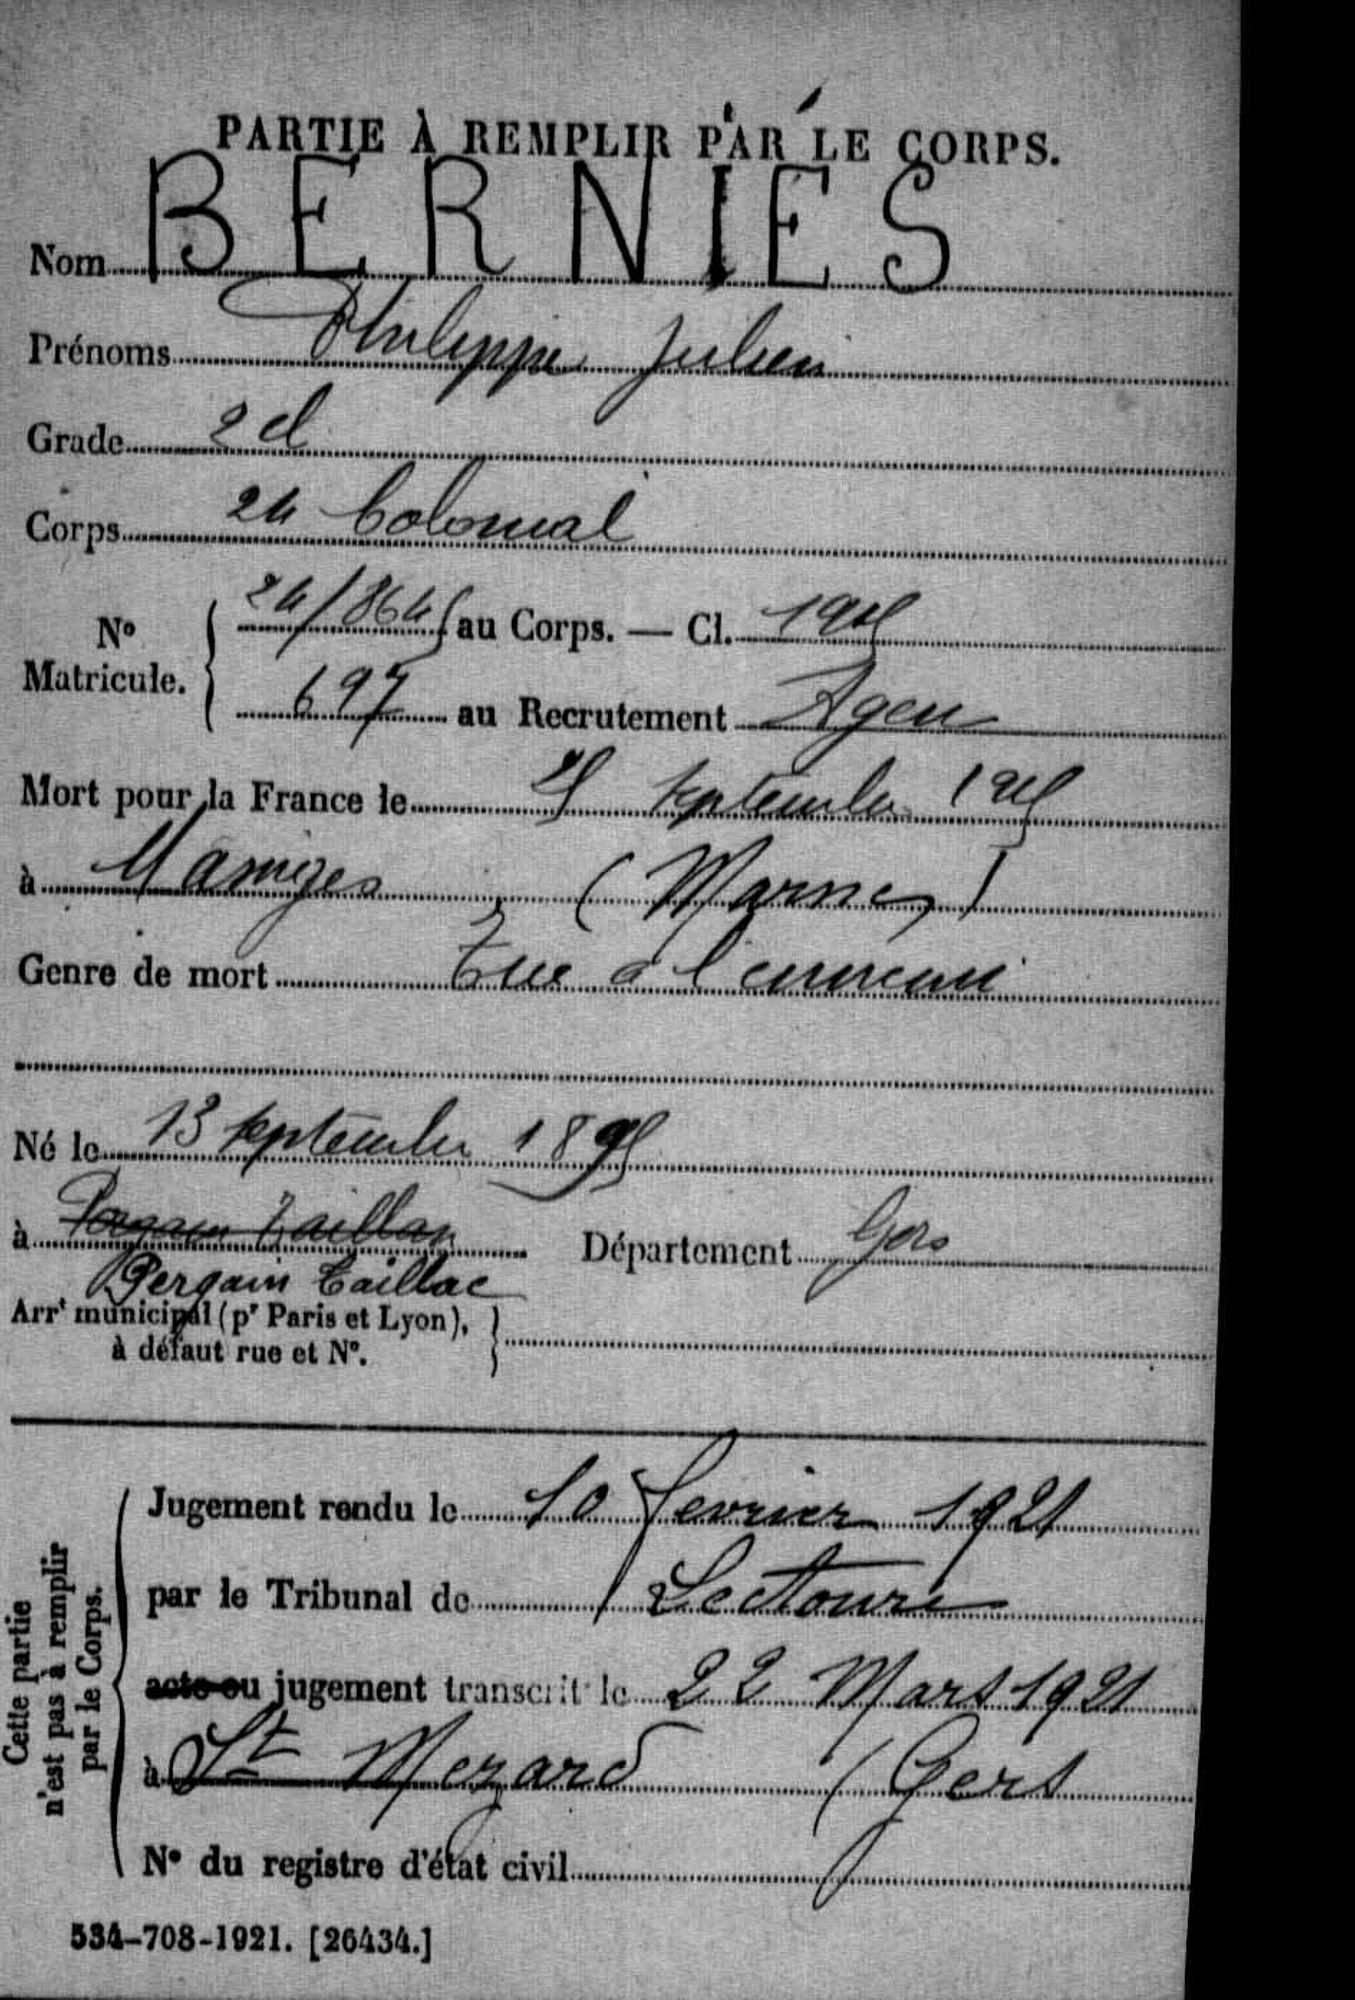 PARTIE À REMPLIR PAR LE CORPS.
Nom BERNIÈS
Prénoms Philippe Julien
Grade 2 cl
Corps 24 Colonial
24/864 au Corps. — Cl. 1915
N° Matricule.
697 au Recrutement Agen
Mort pour la France le septembre 1915
à Massiges (Marne)
Genre de mort Tué à l'ennemi
Né le 13 septembre 1895
à Pergain Taillac Département Gers
Pergain Taillac
Arrt municipal (pr Paris et Lyon),
à défaut rue et N°.
Cette partie n'est pas à remplir par le Corps.
Jugement rendu le 10 fevrier 1921
par le Tribunal de Lectoure
acte ou jugement transcrit le 22 Mars 1921
à St Mezard (Gers
N° du registre d'état civil
534-708-1921. [26434.]